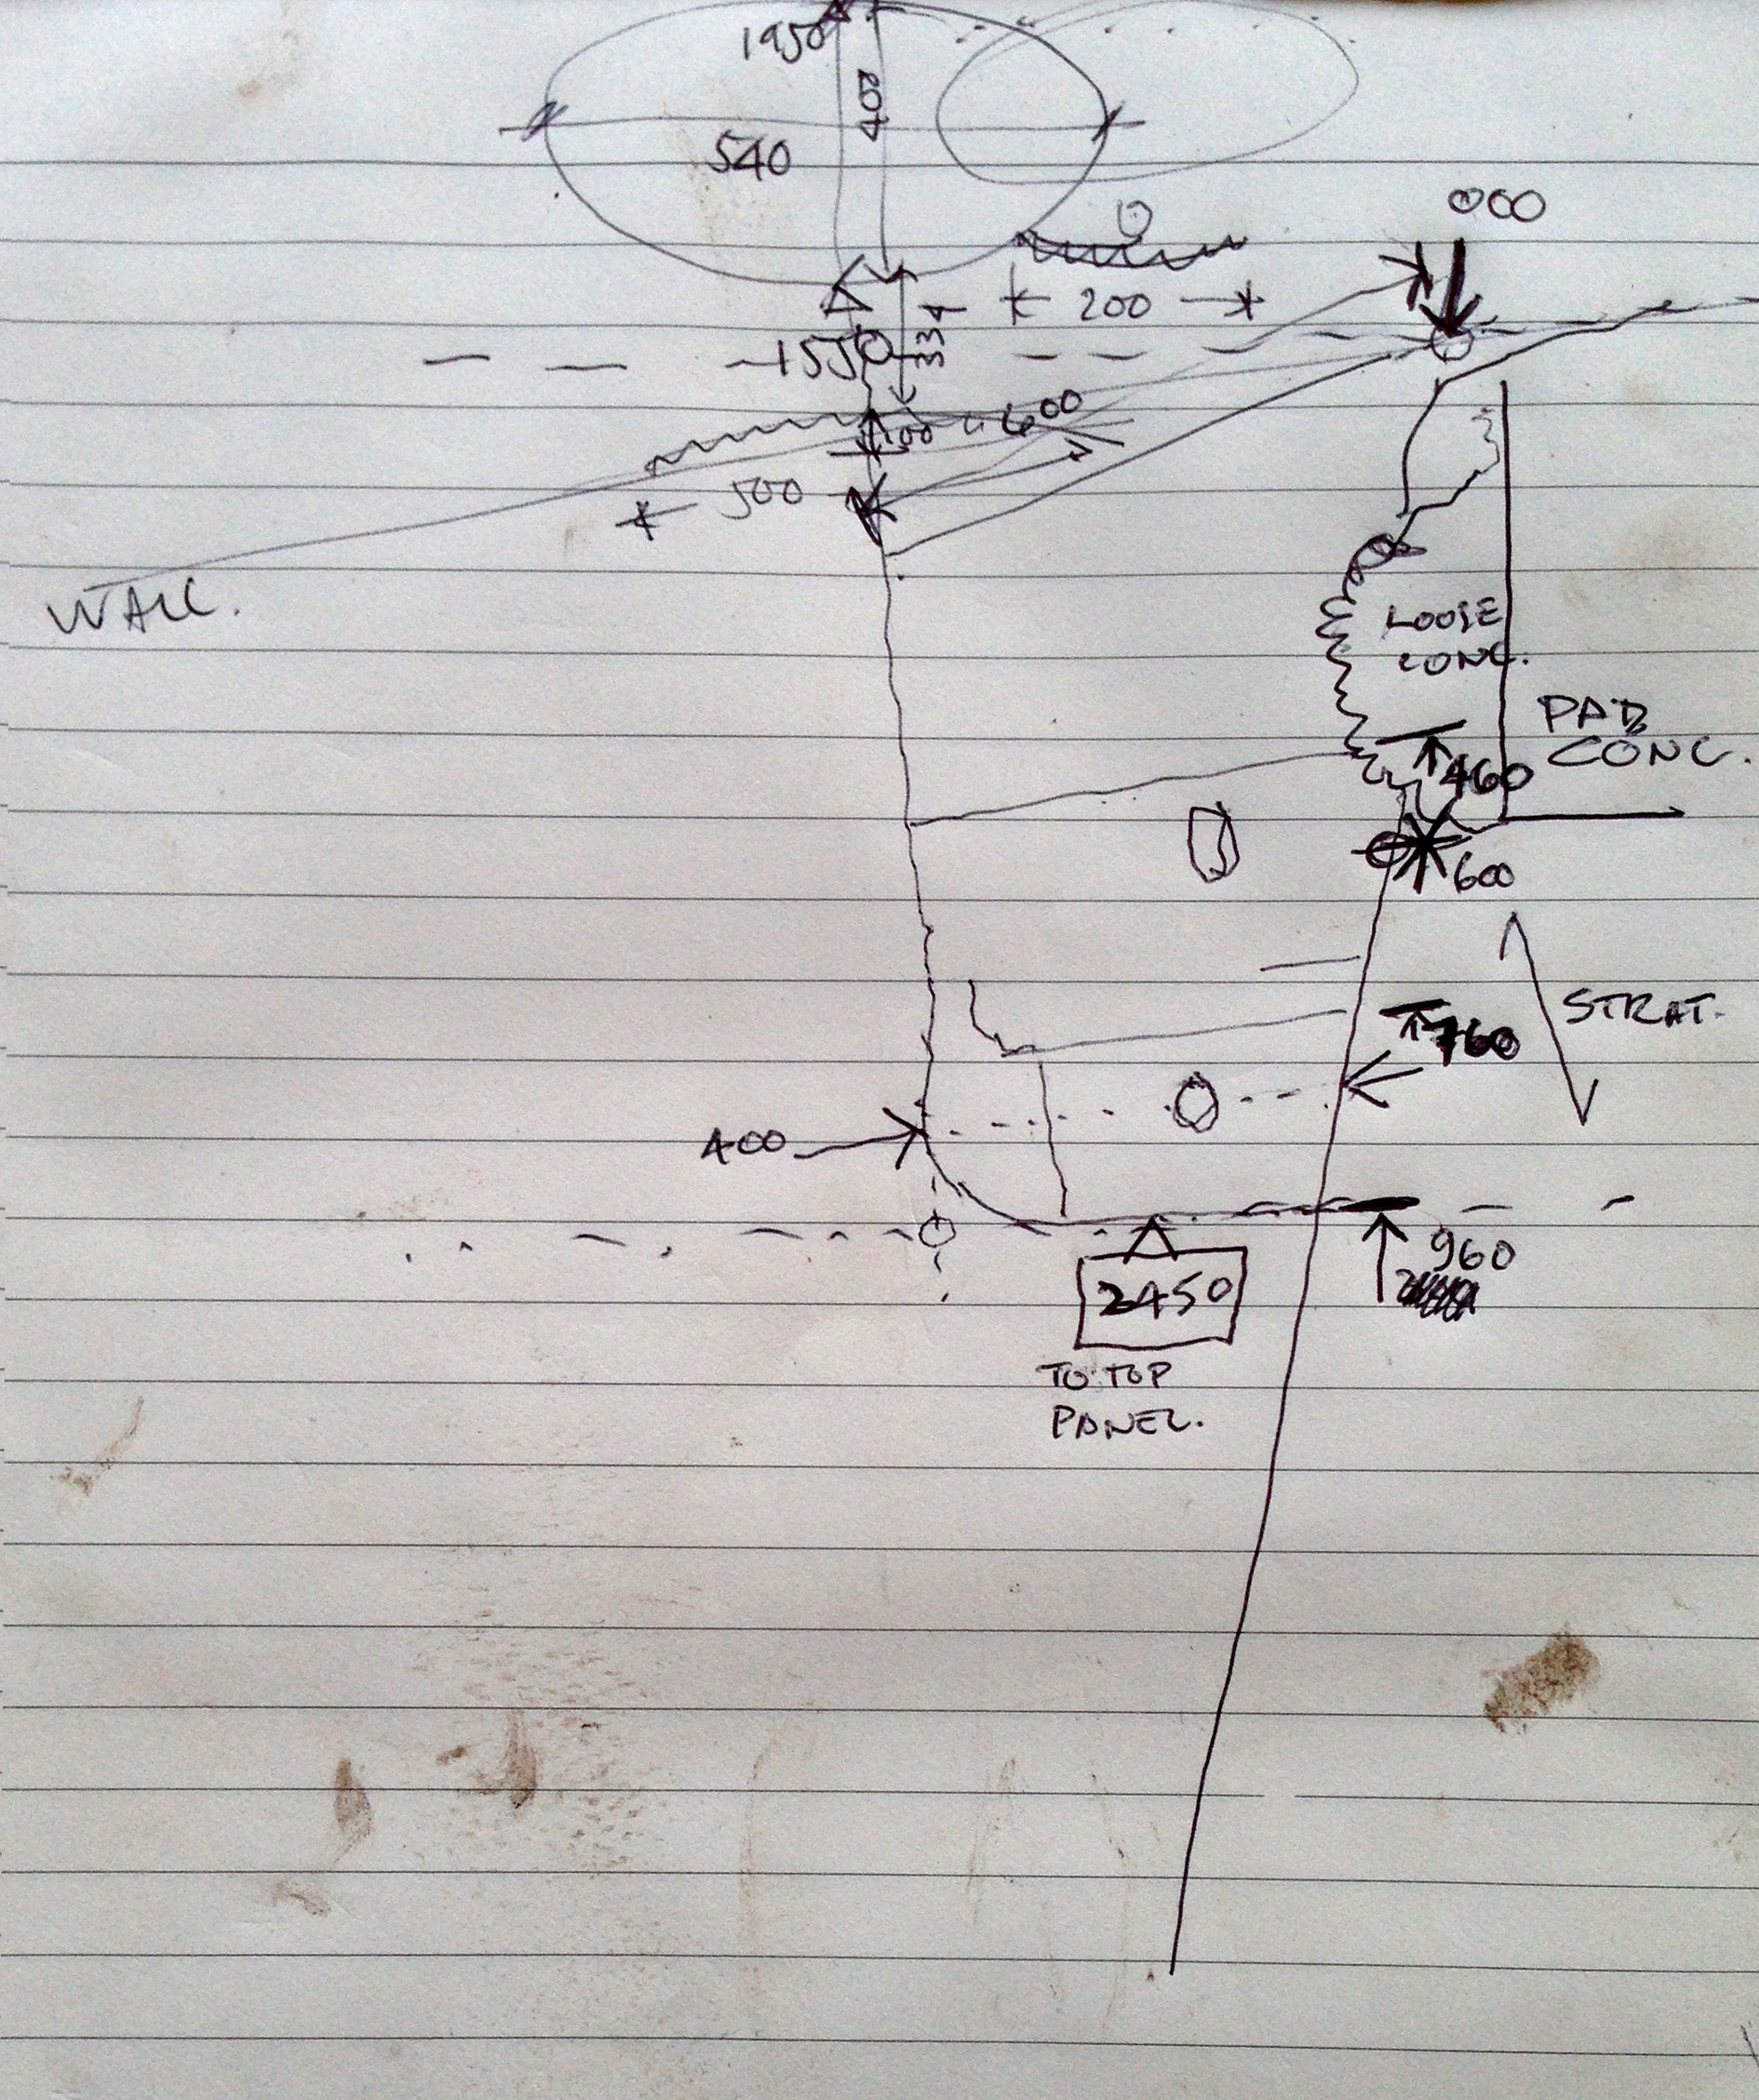 1950
402
540
000
200
1550
334
100
600
500
WALL.
LOOSE
CONC.
PAD
CONC.
460
600
STRAT.
760
400
960
2450
TO TOP
PANEL.